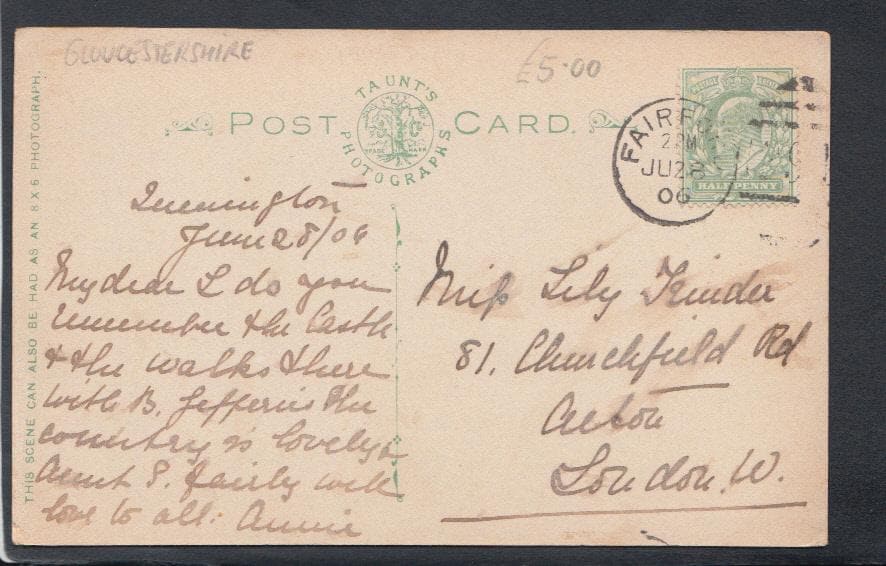 GLOUCESTERSHIRE
£5.00
TAUNT'S
PHOTOGRAPHS
TRADE MARK
POST CARD.
FAIRFO
2 PM
JU 28
06
HALFPENNY
THIS SCENE CAN ALSO BE HAD AS AN 8 X 6 PHOTOGRAPH.
Quenington
June 28/06
My dear L do you
remember the Castle
& the walks there
with B. Jefferies the
country is lovely &
Aunt S. fairly well
love to all. Annie
Miss Lily Trinder
81. Churchfield Rd
Acton
London. W.